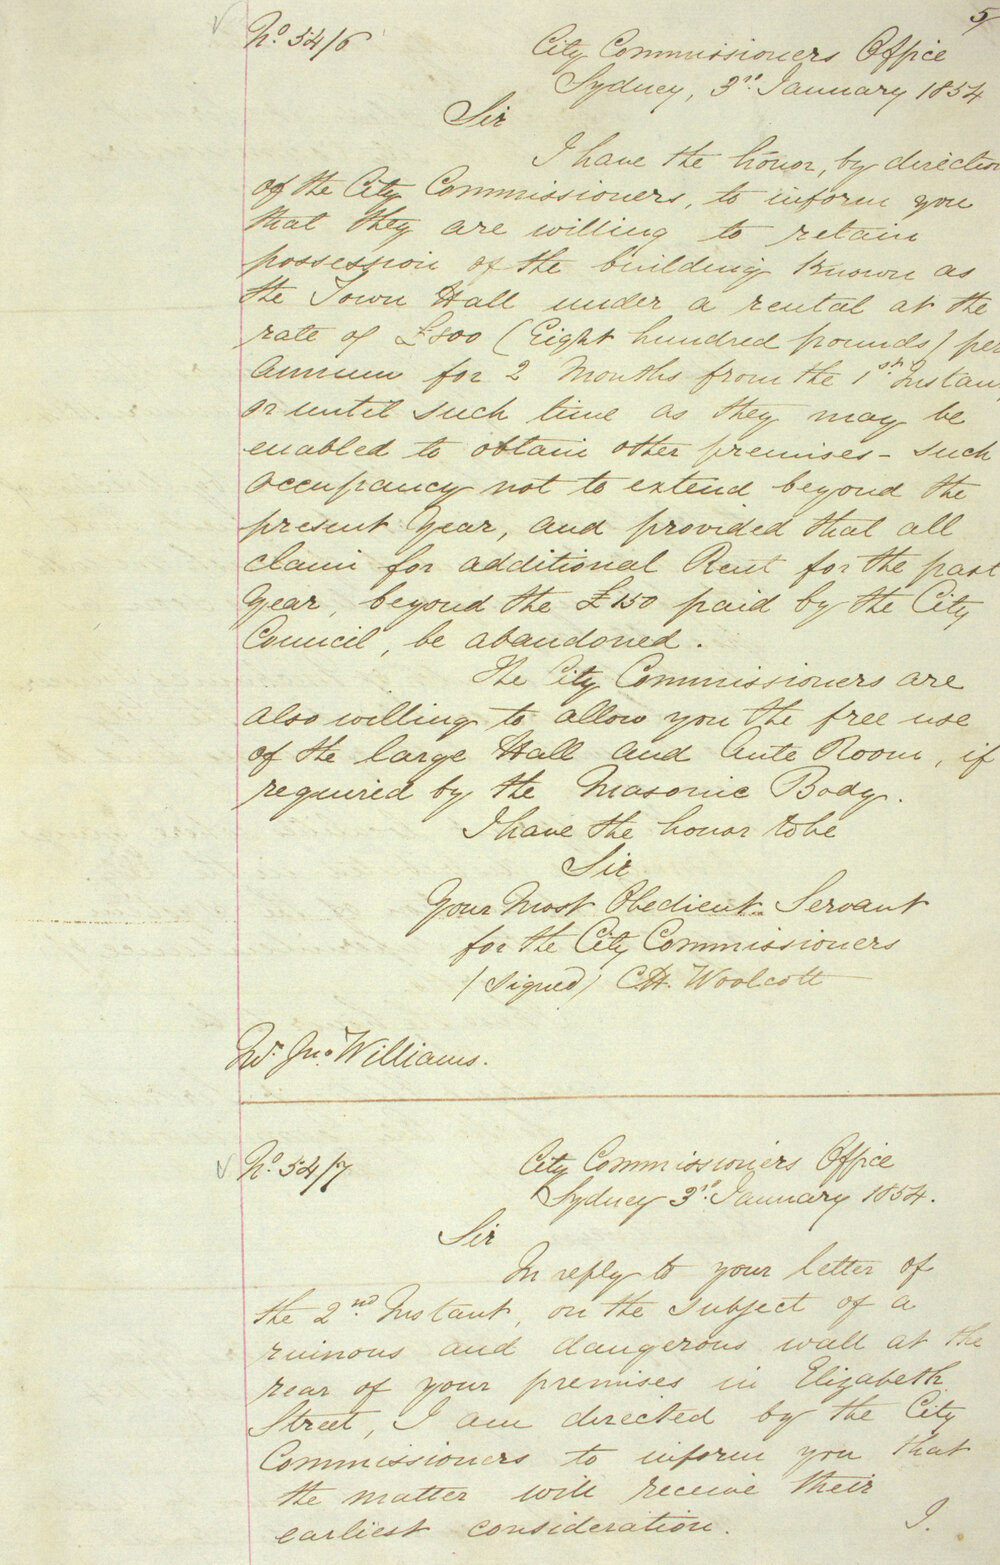 5
No. 54/6
City Commissioners Office
Sydney, 3rd. January 1854
Sir
I have the honor, by direction
of the City Commissioners, to inform you
that they are willing to retain
possession of the building known as
the Town Hall under a rental at the
rate of £800 (Eight hundred pounds) per
Annum for 2 Months from the 1st. Instant
or until such time as they may be
enabled to obtain other premises - such
occupancy not to extend beyond the
present Year, and provided that all
claim for additional Rent for the past
Year, beyond the £150 paid by the City
Council, be abandoned.
The City Commissioners are
also willing to allow you the free use
of the large Hall and Ante Room, if
required by the Masonic Body.
I have the honor to be
Sir
Your Most Obedient Servant
for the City Commissioners
(Signed) C.H. Woolcott
Jno. Williams.
No. 54/7
City Commissioners Office
Sydney 3rd. January 1854.
Sir
In reply to your letter of
the 2nd. Instant, on the subject of a
ruinous and dangerous wall at the
rear of your premises in Elizabeth
Street, I am directed by the City
Commissioners to inform you that
the matter will receive their
earliest consideration.
I.